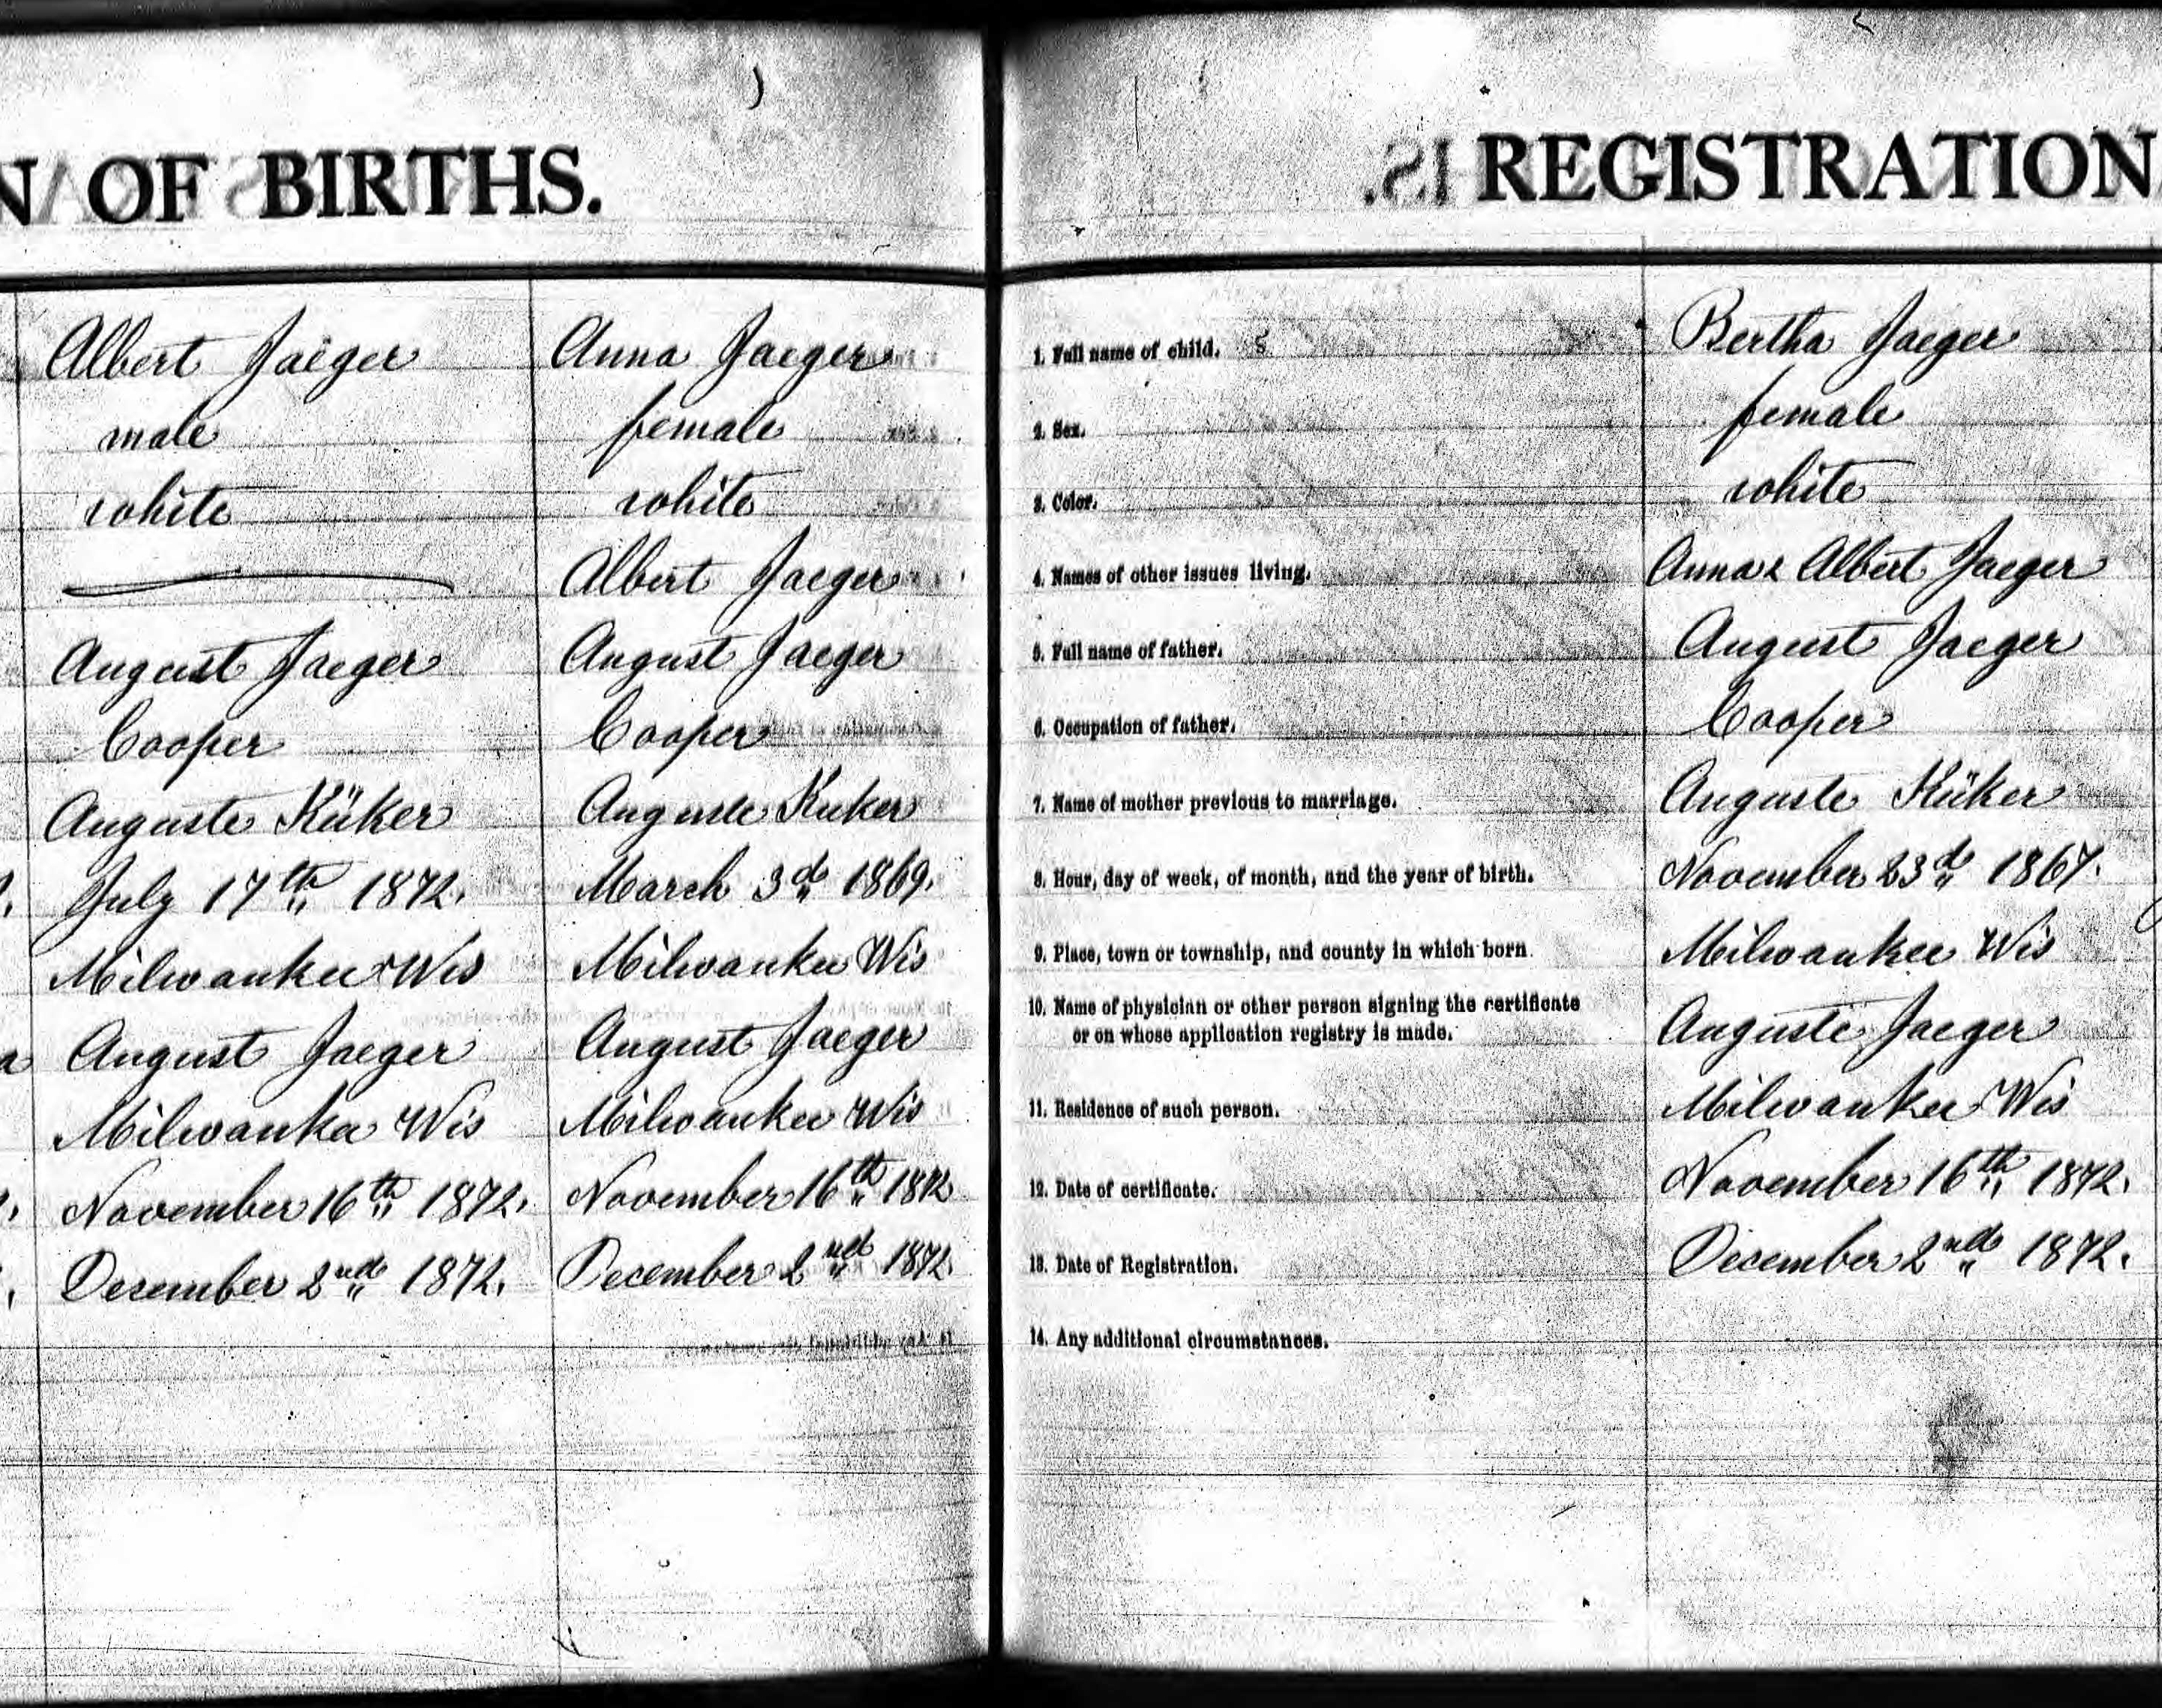 N OF BIRTHS.
Albert Jaeger
male
white
August Jaeger
Cooper
Auguste Küker
July 17th 1872.
Milwaukee Wis
August Jaeger
Milwaukee Wis
November 16th 1872.
December 2nd 1872.
Anna Jaeger
female
white
Albert Jaeger
August Jaeger
Cooper
Auguste Kuker
March 3d 1869.
Milwaukee Wis
August Jaeger
Milwaukee Wis
November 16th 1872
December 2nd 1872.
REGISTRATION
1. Full name of child. Bertha Jaeger
2. Sex. female
3. Color. white
4. Names of other issues living. Anna & Albert Jaeger
5. Full name of father. August Jaeger
6. Occupation of father. Cooper
7. Name of mother previous to marriage. Auguste Küker
8. Hour, day of week, of month, and the year of birth. November 23d 1867.
9. Place, town or township, and county in which born. Milwaukee Wis
10. Name of physician or other person signing the certificate
or on whose application registry is made. Auguste Jaeger
11. Residence of such person. Milwaukee Wis
12. Date of certificate. November 16th 1872.
13. Date of Registration. December 2nd 1872.
14. Any additional circumstances.